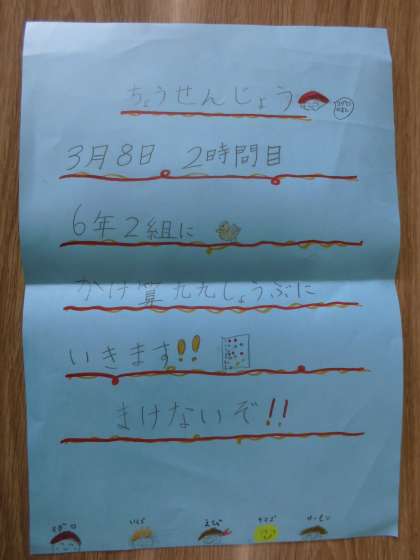 ちょうせんじょう
3月8日 2時間目
6年2組に
かけ算九九しょうぶに
いきます!!
まけないぞ!!
えび サーモン